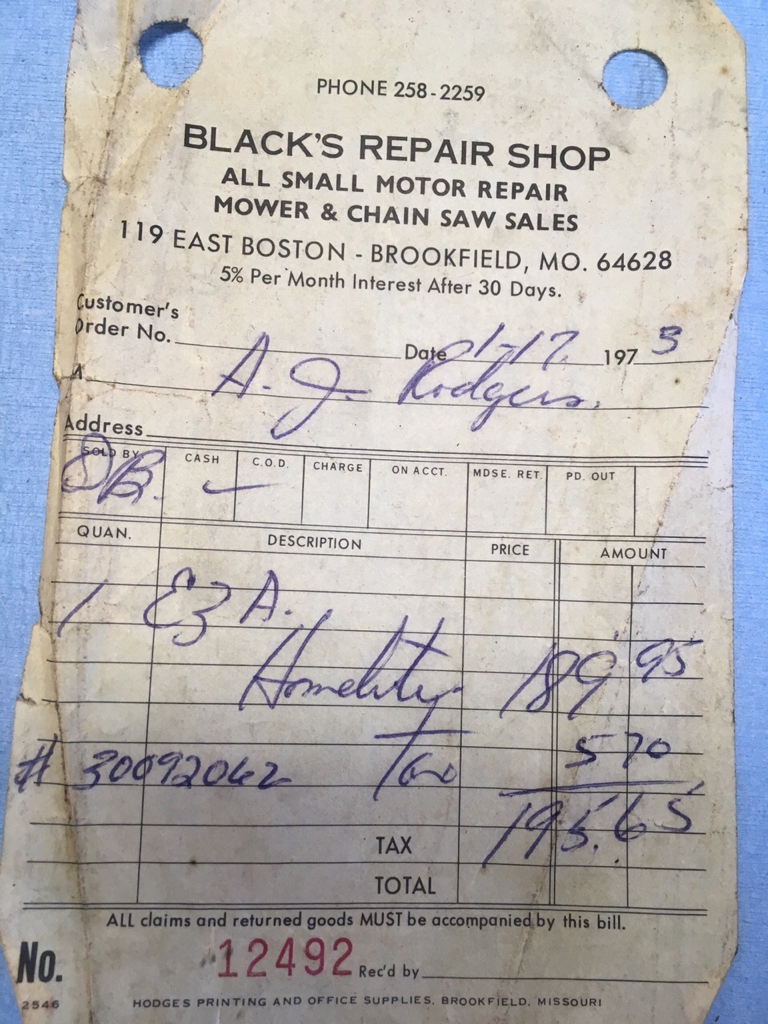 PHONE 258-2259
BLACK'S REPAIR SHOP
ALL SMALL MOTOR REPAIR
MOWER & CHAIN SAW SALES
119 EAST BOSTON - BROOKFIELD, MO. 64628
5% Per Month Interest After 30 Days.
Customer's
Order No. Date 1-17. 1973
M A. J. Rodgers.
Address
SOLD BY CASH C.O.D. CHARGE ON ACCT. MDSE. RET. PD. OUT
QUAN. DESCRIPTION PRICE AMOUNT
1 EZ A.
Homelite 189 95
# 30092062 Tax 5 70
195.65
TAX
TOTAL
ALL claims and returned goods MUST be accompanied by this bill.
No. 12492 Rec'd by
2546 HODGES PRINTING AND OFFICE SUPPLIES, BROOKFIELD, MISSOURI